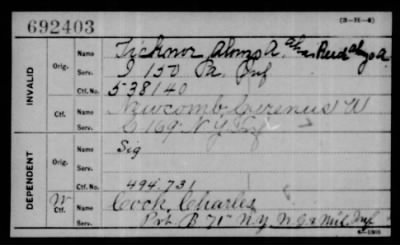 692403 (3-31-4)
INVALID
Orig.
Name Ticknor Alonzo A.
Serv. I 150 Pa Inf
Ctf. No. 538140
Ctf.
Name Newcomb Cerenus W
Serv. C 169 N Y Inf
DEPENDENT
Orig.
Name
Serv. Sig
Ctf. No. 494.731
W
Ctf.
Name Cook, Charles
Serv. Pvt. B 71" N.Y. N.G. Mil. Inf